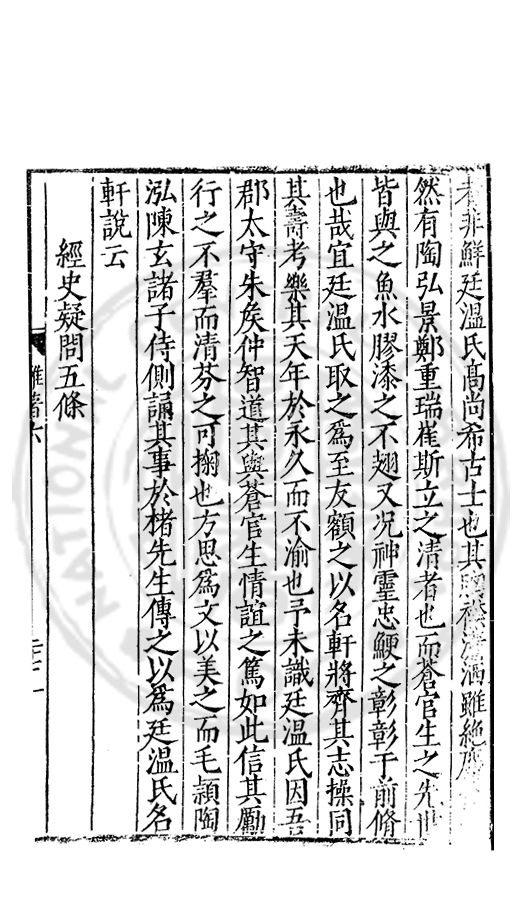 者非鮮廷溫氏髙尚希古士也其胸襟瀟洒雖絶塵
然有陶弘景鄭重瑞崔斯立之清者也而蒼官生之先世
皆與之魚水膠漆之不翅又况神靈忠鯁之彰彰于前脩
也哉宜廷溫氏取之爲至友顧之以名軒將齊其志操同
其壽考樂其天年於永久而不渝也予未識廷溫氏因吾
郡太守朱矦仲智道其與蒼官生情誼之篤如此信其勵
行之不羣而清芬之可掬也方思爲文以美之而毛頴陶
泓陳玄諸子侍側誦其事於楮先生傳之以爲廷溫氏名
軒說云
經史疑問五條
雜著六